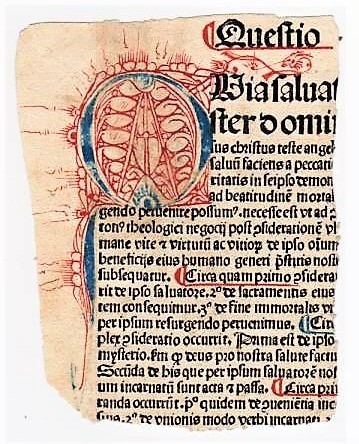 Questio
Quia saluat
ster domin
sus christus teste angel
saluū faciens a peccati
ritatis in seipso demon
ad beatitudinē mortal
gendo peruenire possumꝰ. necesse est vt ad ꝯ
tonꝰ theologici negocij post ꝯsiderationē vl
mane vite ⁊ virtutū ac vitioꝝ de ipso oīum
beneficijs eius humano generi p̄stitis nostr
subsequatur. ¶ Circa quam primo ꝯsidera
rit de ipso saluatore. 2º de sacramentis eius
tem consequimur. 3º de fine immortalis vi
per ipsum resurgendo peruenimus. ¶ Circ
plex ꝯsideratio occurrit. Prima est de ipso
mysterio. Em ꝙ deus pro nostra salute factu
Secūda de his que per ipsum saluatorē nost
um incarnatū sunt acta ⁊ passa. ¶ Circa prim
randa occurrūt. pº quidem de ꝯueniētia inc
sius. 2º de vnionis modo verbi incarnati.